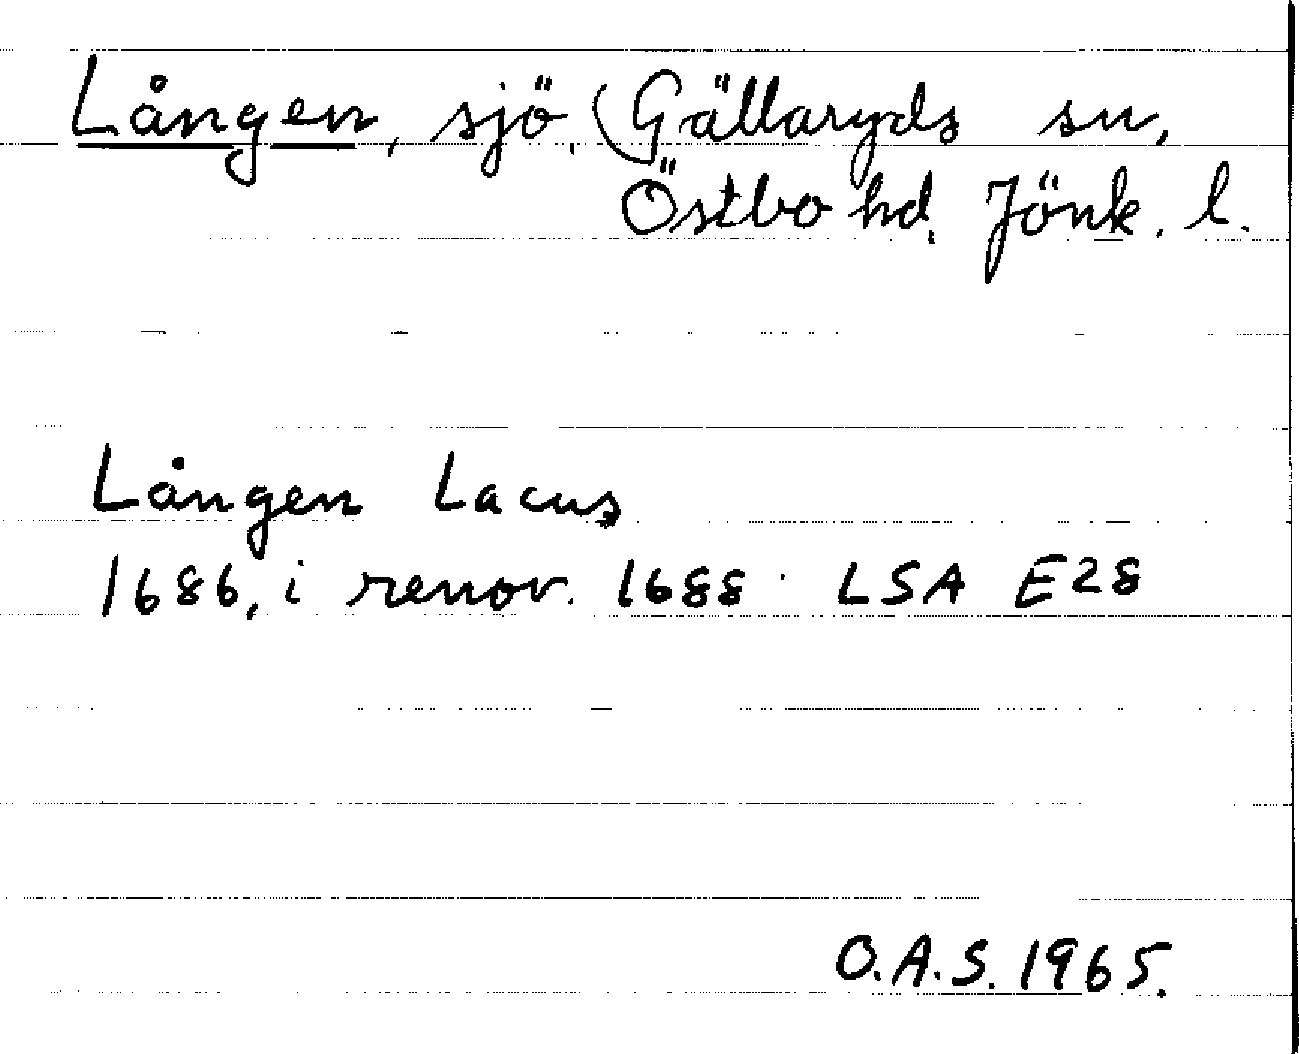 Lången, sjö, Gällaryds sn,
Östbo hd, Jönk. l.
Lången Lacus
1686, i renov. 1688 LSA E28
O.A.S. 1965.